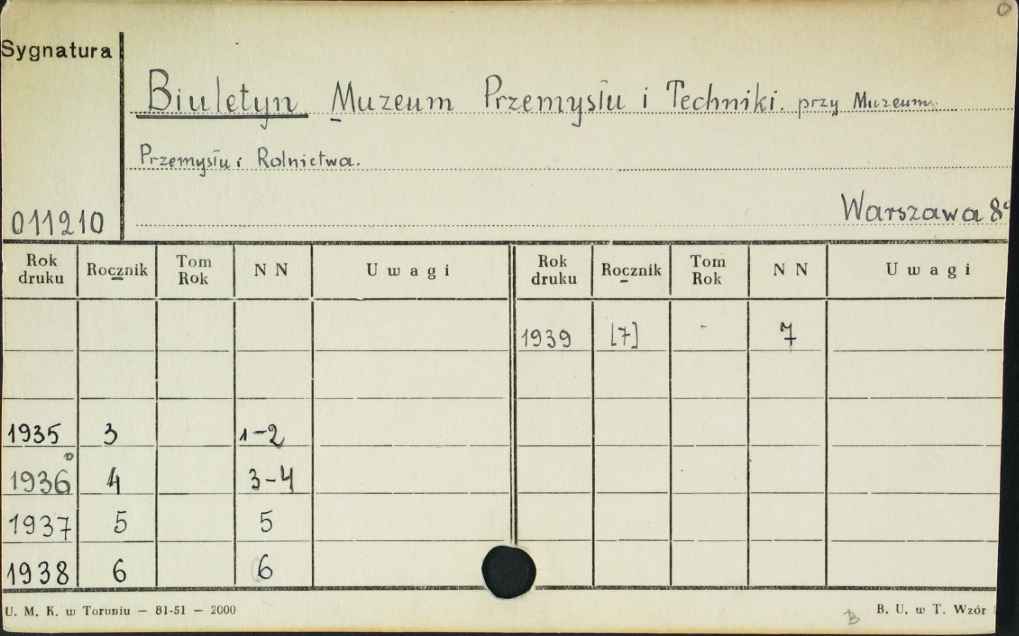 Sygnatura
Biuletyn Muzeum Przemysłu i Techniki. przy Muzeum
Przemysłu i Rolnictwa.
011210
Warszawa 8°
Rok druku Rocznik Tom Rok N N Uwagi Rok druku Rocznik Tom Rok N N Uwagi
1939 [7] - 7
1935 3 1-2
1936 4 3-4
1937 5 5
1938 6 6
U. M. K. w Toruniu — 81-51 — 2000
B. U. w T. Wzór